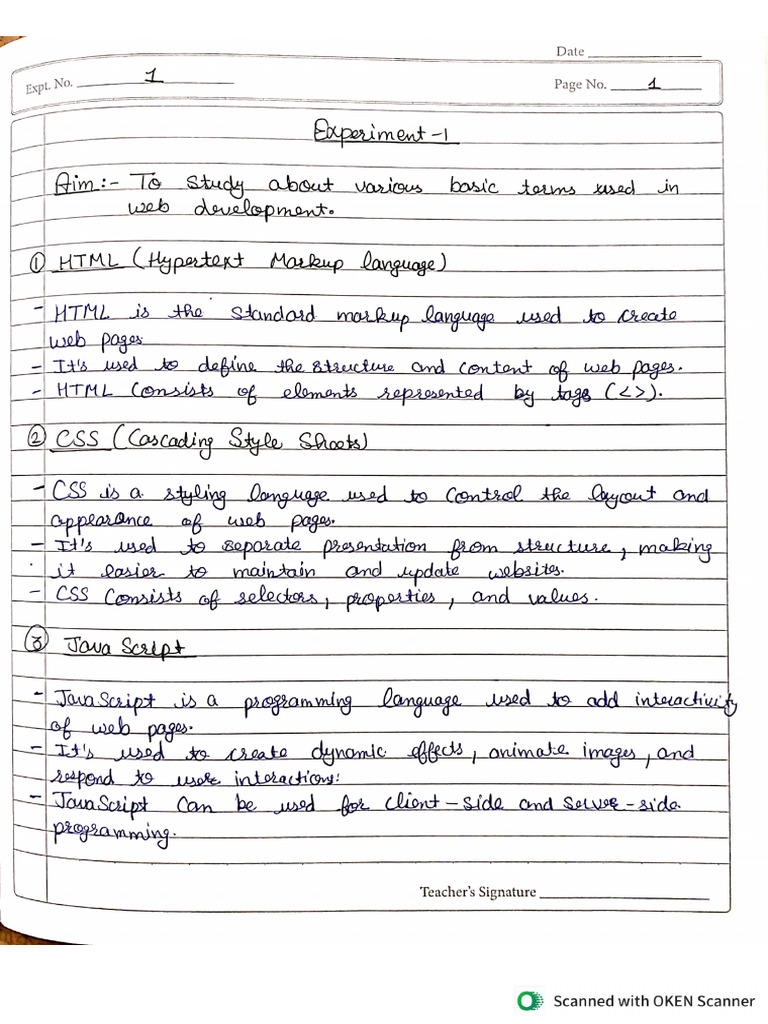 Date
Expt. No. 1
Page No. 1
Experiment-1
Aim:- To study about various basic terms used in
web development.
① HTML (Hypertext Markup language)
- HTML is the standard markup language used to create
web pages
- It's used to define the structure and content of web pages.
- HTML Consists of elements represented by tags (<>).
② CSS (Cascading Style Sheets)
- CSS is a styling language used to control the layout and
appearance of web pages.
- It's used to separate presentation from structure, making
it easier to maintain and update websites.
- CSS Consists of selectors, properties, and values.
③ Java Script
- JavaScript is a programming language used to add interactivity
of web pages.
- It's used to create dynamic effects, animate images, and
respond to user interactions.
- JavaScript Can be used for client-side and server-side
programming.
Teacher's Signature
Scanned with OKEN Scanner